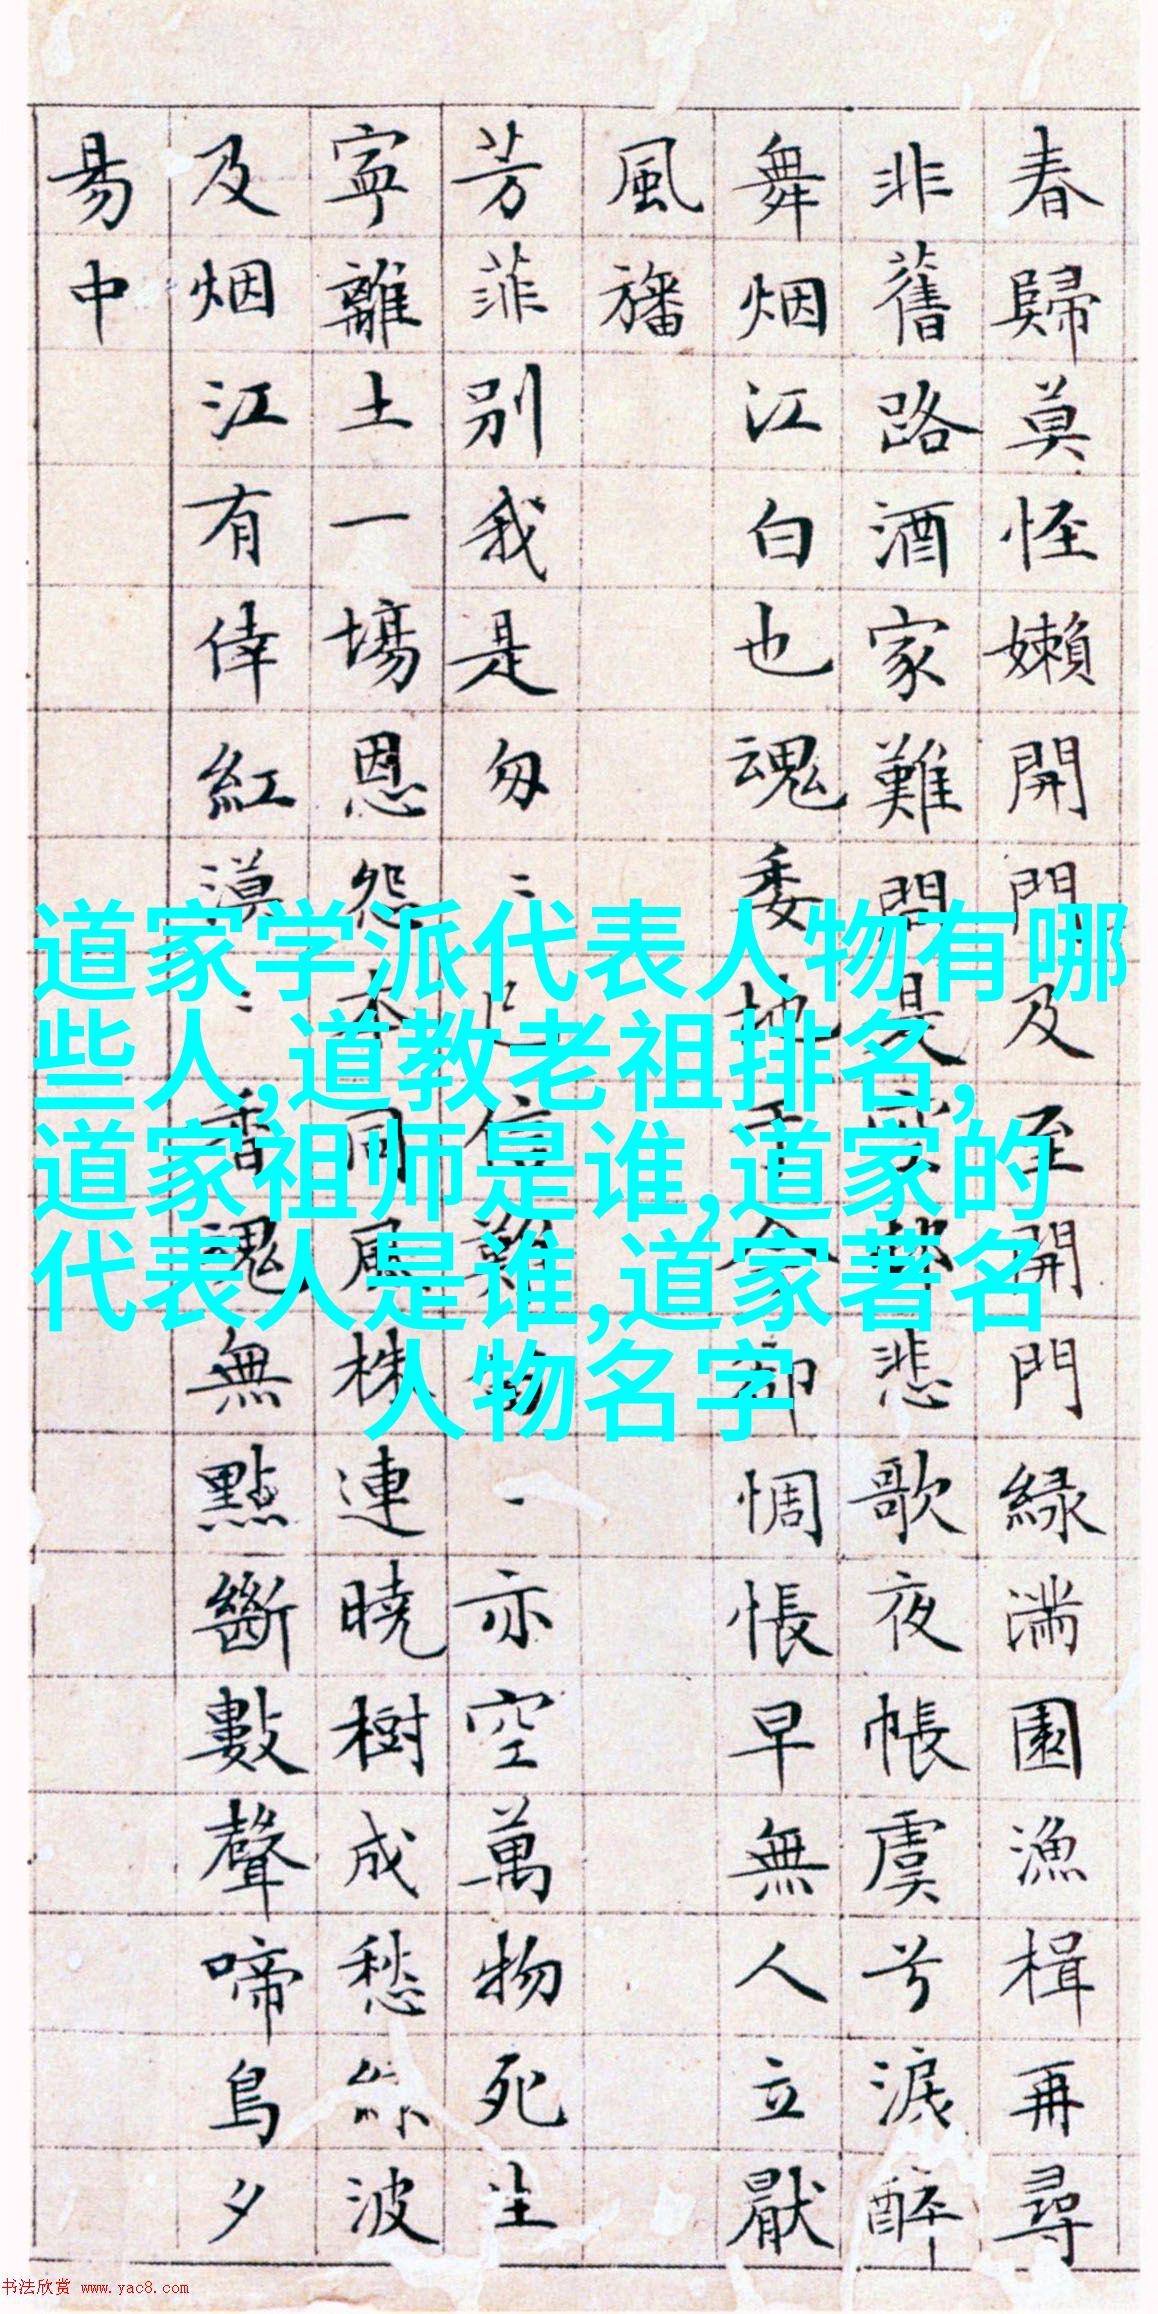 春歸莫怪嬾開門及至開門緑滿園漁楫再尋
非舊路酒家難問是悲歌夜帳虞兮淚醉
舞烟江白也魂委地于今却惆悵早無人立厭
風旛
芳菲別我是匆〻已信難一亦空萬物死生
寧離土一場恩怨本同風株連曉樹成愁絲波
及烟江有倖紅漠〻香魂無點斷數聲啼鳥夕
昜中
道家学派代表人物有哪
些人,道教老祖排名,
道家祖师是谁,道家的
代表人是谁,道家著名
人物名字
书法欣赏 www.yac8.com